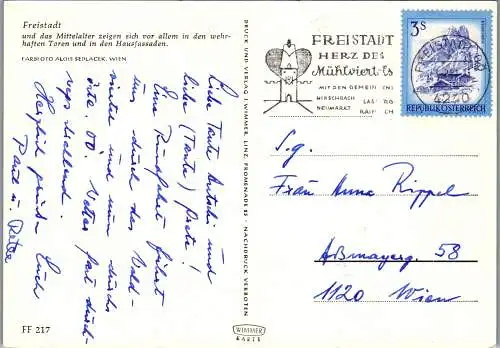 Freistadt
und das Mittelalter zeigen sich vor allem in den wehr-
haften Toren und in den Hausfassaden.
FARBFOTO ALOIS SEDLACEK, WIEN
Liebe Tante und
liebe (Tante) Grete!
Eine Rundfahrt führt
uns durch das Wald-
viertel und nun durchs
OÖ. Wetter fast durch-
wegs strahlend.
Herzlich grüßen Euch
Paul u.
FF 217
DRUCK UND VERLAG J. WIMMER, LINZ, PROMENADE 23 - NACHDRUCK VERBOTEN
WIMMER
KARTE
FREISTADT
HERZ DES
Mühlviertels
MIT DEN GEMEIN
HIRSCHBACH LAS
NEUMARKT RAIN CH
3 S
REPUBLIK ÖSTERREICH
FREISTADT
4240
S.g.
Frau Anna Rippel
Aßmayerg. 58
1120 Wien